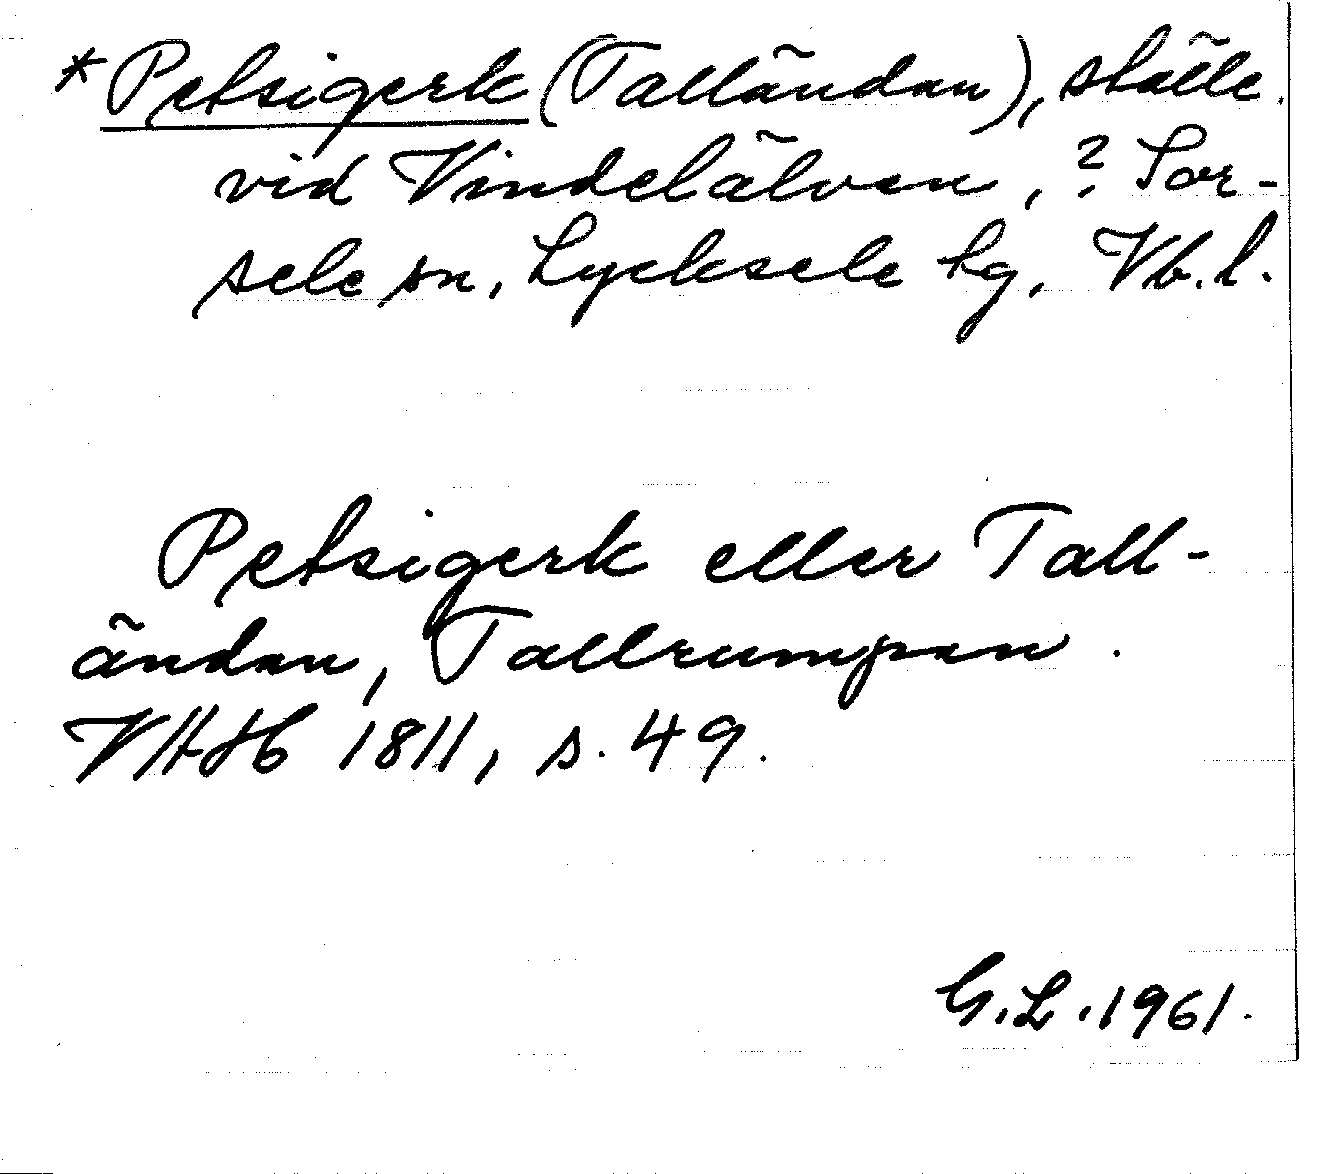 *Petsigerk (Talländan), ställe
vid Vindelälven, ? Sor-
sele sn, Lycksele lg, Vb. l.
Petsigerk eller Tall-
ändan, Tallrumpan.
VHAH 1811, s. 49.
G.L. 1961.